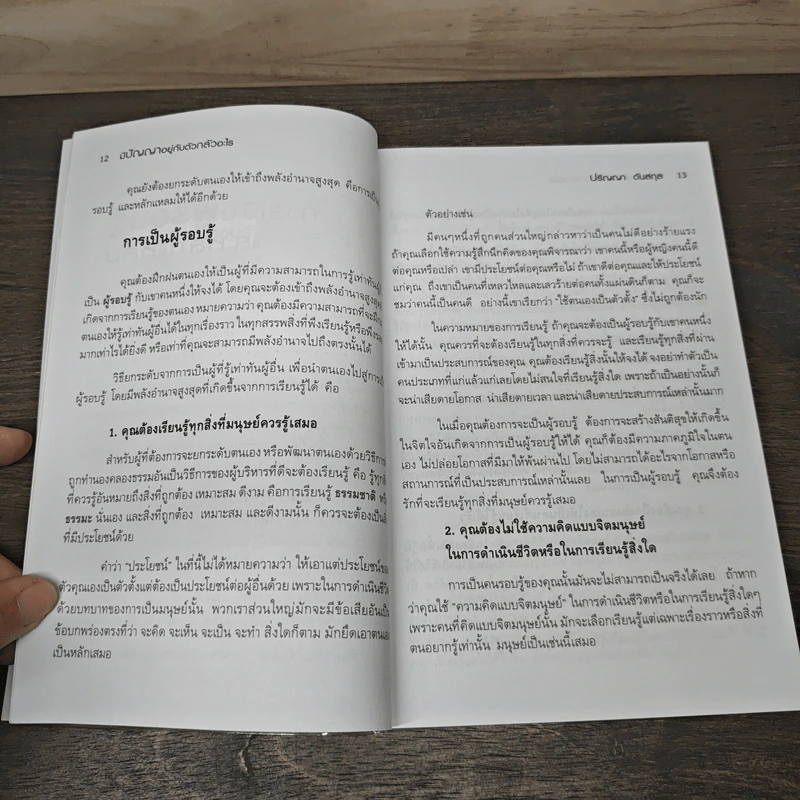 12 มีปัญญาอยู่กับตัวกลัวอะไร
คุณยังต้องยกระดับตนเองให้เข้าถึงพลังอำนาจสูงสุด คือการเป็น
รอบรู้ และหลักแหลมให้ได้อีกด้วย
การเป็นผู้รอบรู้
คุณต้องฝึกฝนตนเองให้เป็นผู้ที่มีความสามารถในการรู้เท่าทัน
เป็น ผู้รอบรู้ กับเขาคนหนึ่งให้จงได้ โดยคุณจะต้องเข้าถึงพลังอำนาจสูงสุด
เกิดจากการเรียนรู้ของตนเอง หมายความว่า คุณต้องมีความสามารถที่จะฝึก
ตนเองให้รู้เท่าทันผู้อื่นได้ในทุกเรื่องราว ในทุกสรรพสิ่งที่พึงเรียนรู้หรือพึง
มากเท่าไรได้ยิ่งดี หรือเท่าที่คุณจะสามารถมีพลังอำนาจไปถึงตรงนั้นได้
วิธียกระดับจากการเป็นผู้ที่รู้เท่าทันผู้อื่น เพื่อนำตนเองไปสู่การ
ผู้รอบรู้ โดยมีพลังอำนาจสูงสุดที่เกิดขึ้นจากการเรียนรู้ได้ คือ
1. คุณต้องเรียนรู้ทุกสิ่งที่มนุษย์ควรรู้เสมอ
สำหรับผู้ที่ต้องการจะยกระดับตนเอง หรือพัฒนาตนเองด้วยวิธีการ
ถูกทำนองคลองธรรมอันเป็นวิธีการของผู้บริหารที่ดีจะต้องเรียนรู้ คือ รู้ทุกสิ่ง
ที่ควรรู้อันหมายถึงสิ่งที่ถูกต้อง เหมาะสม ดีงาม คือการเรียนรู้ ธรรมชาติ หรือ
ธรรมะ นั่นเอง และสิ่งที่ถูกต้อง เหมาะสม และดีงามนั้น ก็ควรจะต้องเป็นสิ่ง
ที่มีประโยชน์ด้วย
คำว่า “ประโยชน์” ในที่นี้ไม่ได้หมายความว่า ให้เอาแต่ประโยชน์ของ
ตัวคุณเองเป็นตัวตั้งแต่ต้องเป็นประโยชน์ต่อผู้อื่นด้วย เพราะในการดำเนินชีวิต
ด้วยบทบาทของการเป็นมนุษย์นั้น พวกเราส่วนใหญ่มักจะมีข้อเสียอันเป็น
ข้อบกพร่องตรงที่ว่า จะคิด จะเห็น จะเป็น จะทำ สิ่งใดก็ตาม มักยึดเอาตนเอง
เป็นหลักเสมอ
ปริญญา ตันสกุล 13
ตัวอย่างเช่น
มีคนๆหนึ่งที่ถูกคนส่วนใหญ่กล่าวหาว่าเป็นคนไม่ดีอย่างร้ายแรง
ถ้าคุณเลือกใช้ความรู้สึกนึกคิดของคุณพิจารณาว่า เขาคนนี้หรือผู้หญิงคนนี้ดี
ต่อคุณหรือเปล่า เขามีประโยชน์ต่อคุณหรือไม่ ถ้าเขาดีต่อคุณและให้ประโยชน์
แก่คุณ ถึงเขาเป็นคนที่เหลวไหลและเลวร้ายต่อคนทั้งแผ่นดินก็ตาม คุณก็จะ
ชมว่าคนนี้เป็นคนดี อย่างนี้เขาเรียกว่า “ใช้ตนเองเป็นตัวตั้ง” ซึ่งไม่ถูกต้องนัก
ในความหมายของการเรียนรู้ ถ้าคุณจะต้องเป็นผู้รอบรู้กับเขาคนหนึ่ง
ให้ได้นั้น คุณควรที่จะต้องเรียนรู้ในทุกสิ่งที่ควรจะรู้ และเรียนรู้ในทุกสิ่งที่ผ่าน
เข้ามาเป็นประสบการณ์ของคุณ คุณต้องเรียนรู้สิ่งนั้นให้จงได้ จงอย่าทำตัวเป็น
คนประเภทที่แก่แล้วแก่เลยโดยไม่สนใจที่เรียนรู้สิ่งใด เพราะถ้าเป็นอย่างนั้นก็
จะน่าเสียดายโอกาส น่าเสียดายเวลา และน่าเสียดายประสบการณ์เหล่านั้นมาก
ในเมื่อคุณต้องการจะเป็นผู้รอบรู้ ต้องการจะสร้างสันติสุขให้เกิดขึ้น
ในจิตใจอันเกิดจากการเป็นผู้รอบรู้ให้ได้ คุณก็ต้องมีความภาคภูมิใจในตน
เอง ไม่ปล่อยโอกาสที่มีมาให้พ้นผ่านไป โดยไม่สามารถได้อะไรจากโอกาสหรือ
สถานการณ์ที่เป็นประสบการณ์เหล่านั้นเลย ในการเป็นผู้รอบรู้ คุณจึงต้อง
รักที่จะเรียนรู้ทุกสิ่งที่มนุษย์ควรรู้เสมอ
2. คุณต้องไม่ใช้ความคิดแบบจิตมนุษย์
ในการดำเนินชีวิตหรือในการเรียนรู้สิ่งใด
การเป็นคนรอบรู้ของคุณนั้นมันจะไม่สามารถเป็นจริงได้เลย ถ้าหาก
ว่าคุณใช้ “ความคิดแบบจิตมนุษย์” ในการดำเนินชีวิตหรือในการเรียนรู้สิ่งใดๆ
เพราะคนที่คิดแบบจิตมนุษย์นั้น มักจะเลือกเรียนรู้แต่เฉพาะเรื่องราวหรือสิ่งที่
ตนอยากรู้เท่านั้น มนุษย์เป็นเช่นนี้เสมอ